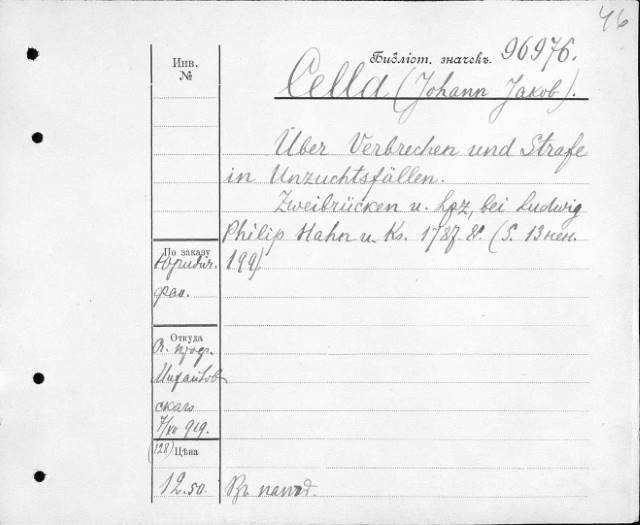 46
Инв. №
Библіот. значекъ. 96976.
Cella (Johann Jakob).
Über Verbrechen und Strafe
in Unzuchtsfällen.
Zweibrücken u. Lpz, bei Ludwig
Philip Hahn u. Ks. 1787. 8°. (S. 13 нен.
199).
По заказу
Юридич.
фак.
Откуда
Михайлов
скаго
919.
(128) Цѣна
12.50.
Въ